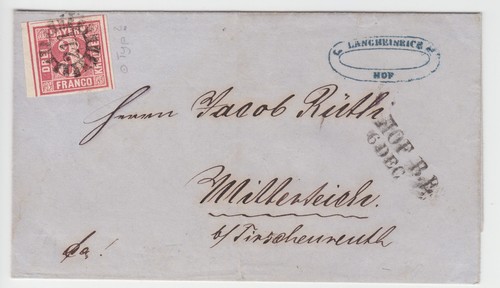 BAYERN
DREI
FRANCO
Typ 2
C. LANGHEINRICH
HOF
Herrn Jacob Rüth
HOF B.E.
6 DEC
Mitterteich.
b/Tirschenreuth